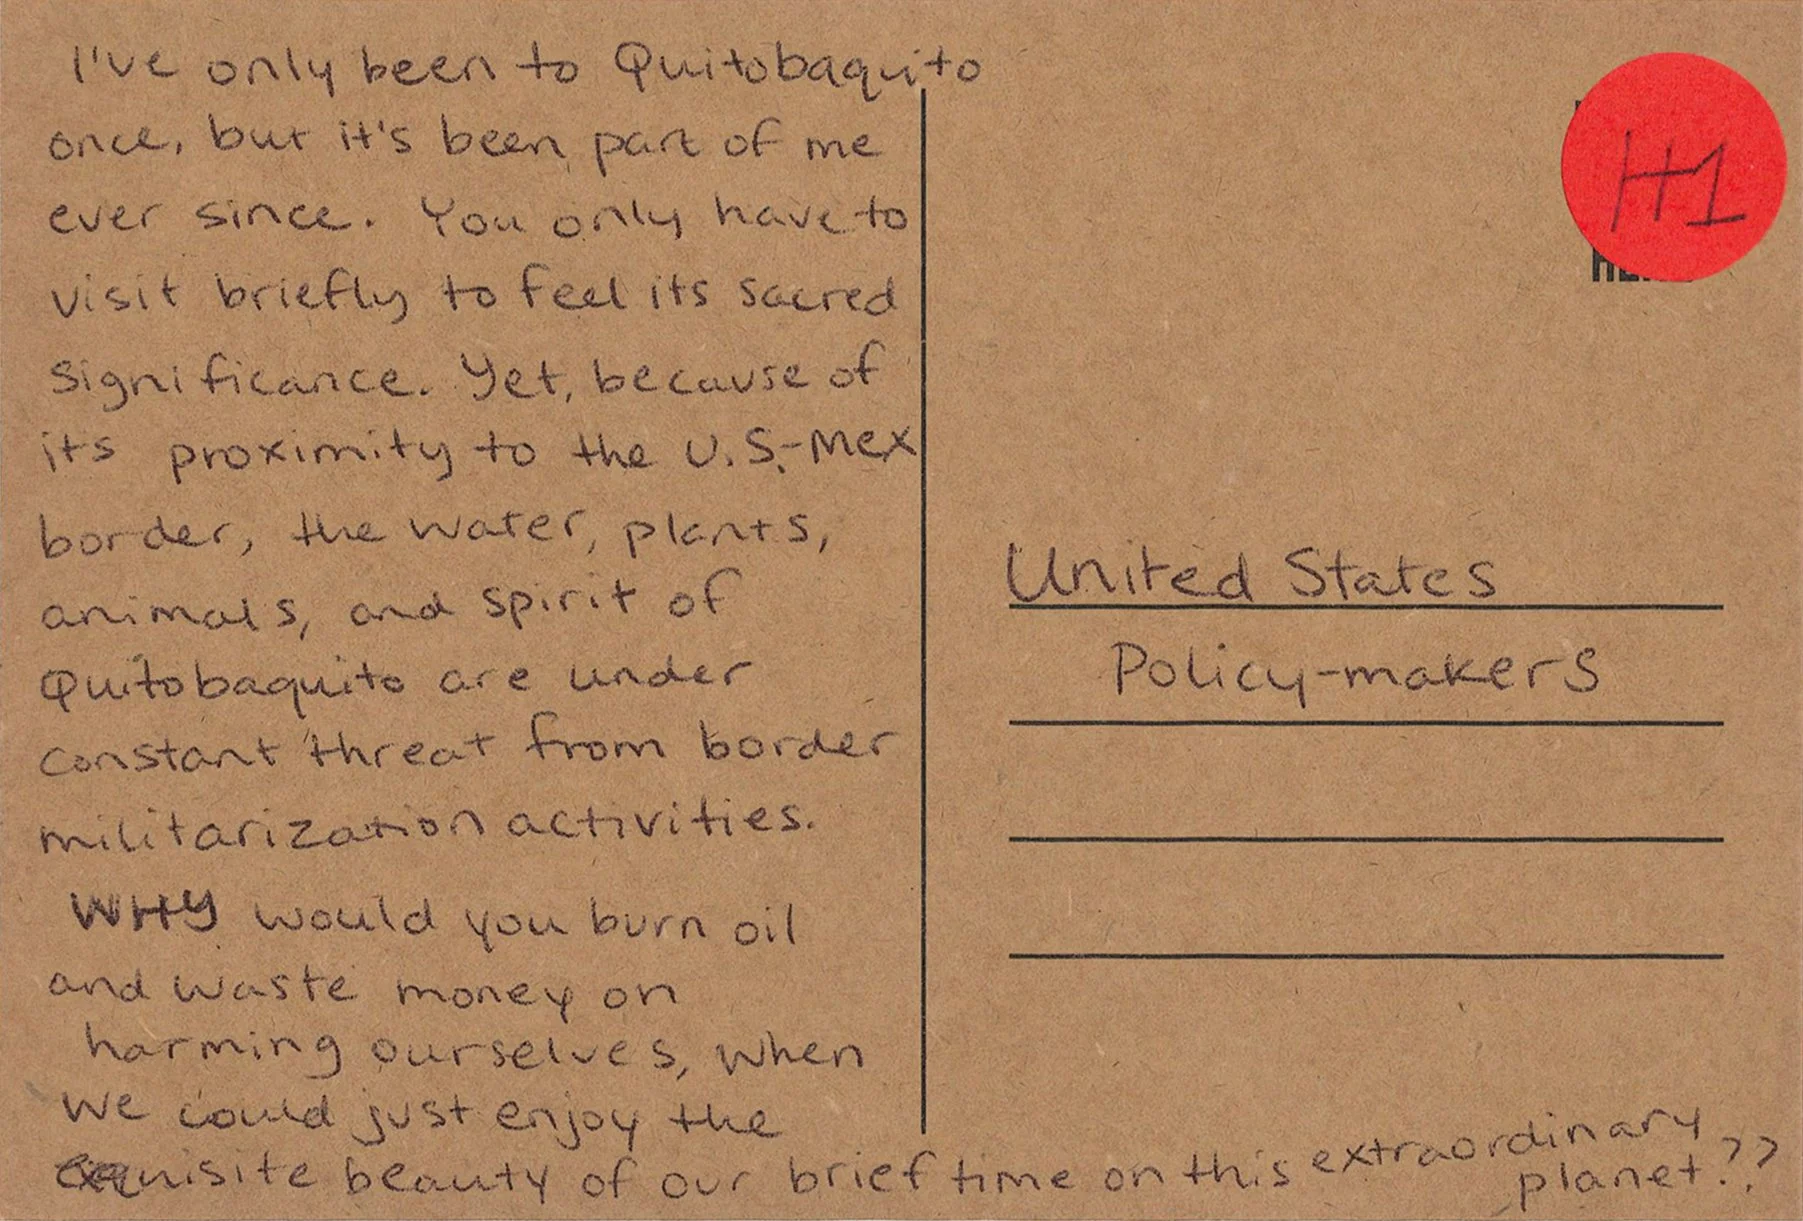 I've only been to Quitobaquito
once, but it's been part of me
ever since. You only have to
visit briefly to feel its sacred
significance. Yet, because of
its proximity to the U.S.-Mex
border, the water, plants,
animals, and spirit of
Quitobaquito are under
constant threat from border
militarization activities.
WHY would you burn oil
and waste money on
harming ourselves, when
we could just enjoy the
exquisite beauty of our brief time on this extraordinary
planet??
H1
United States
Policy-makers